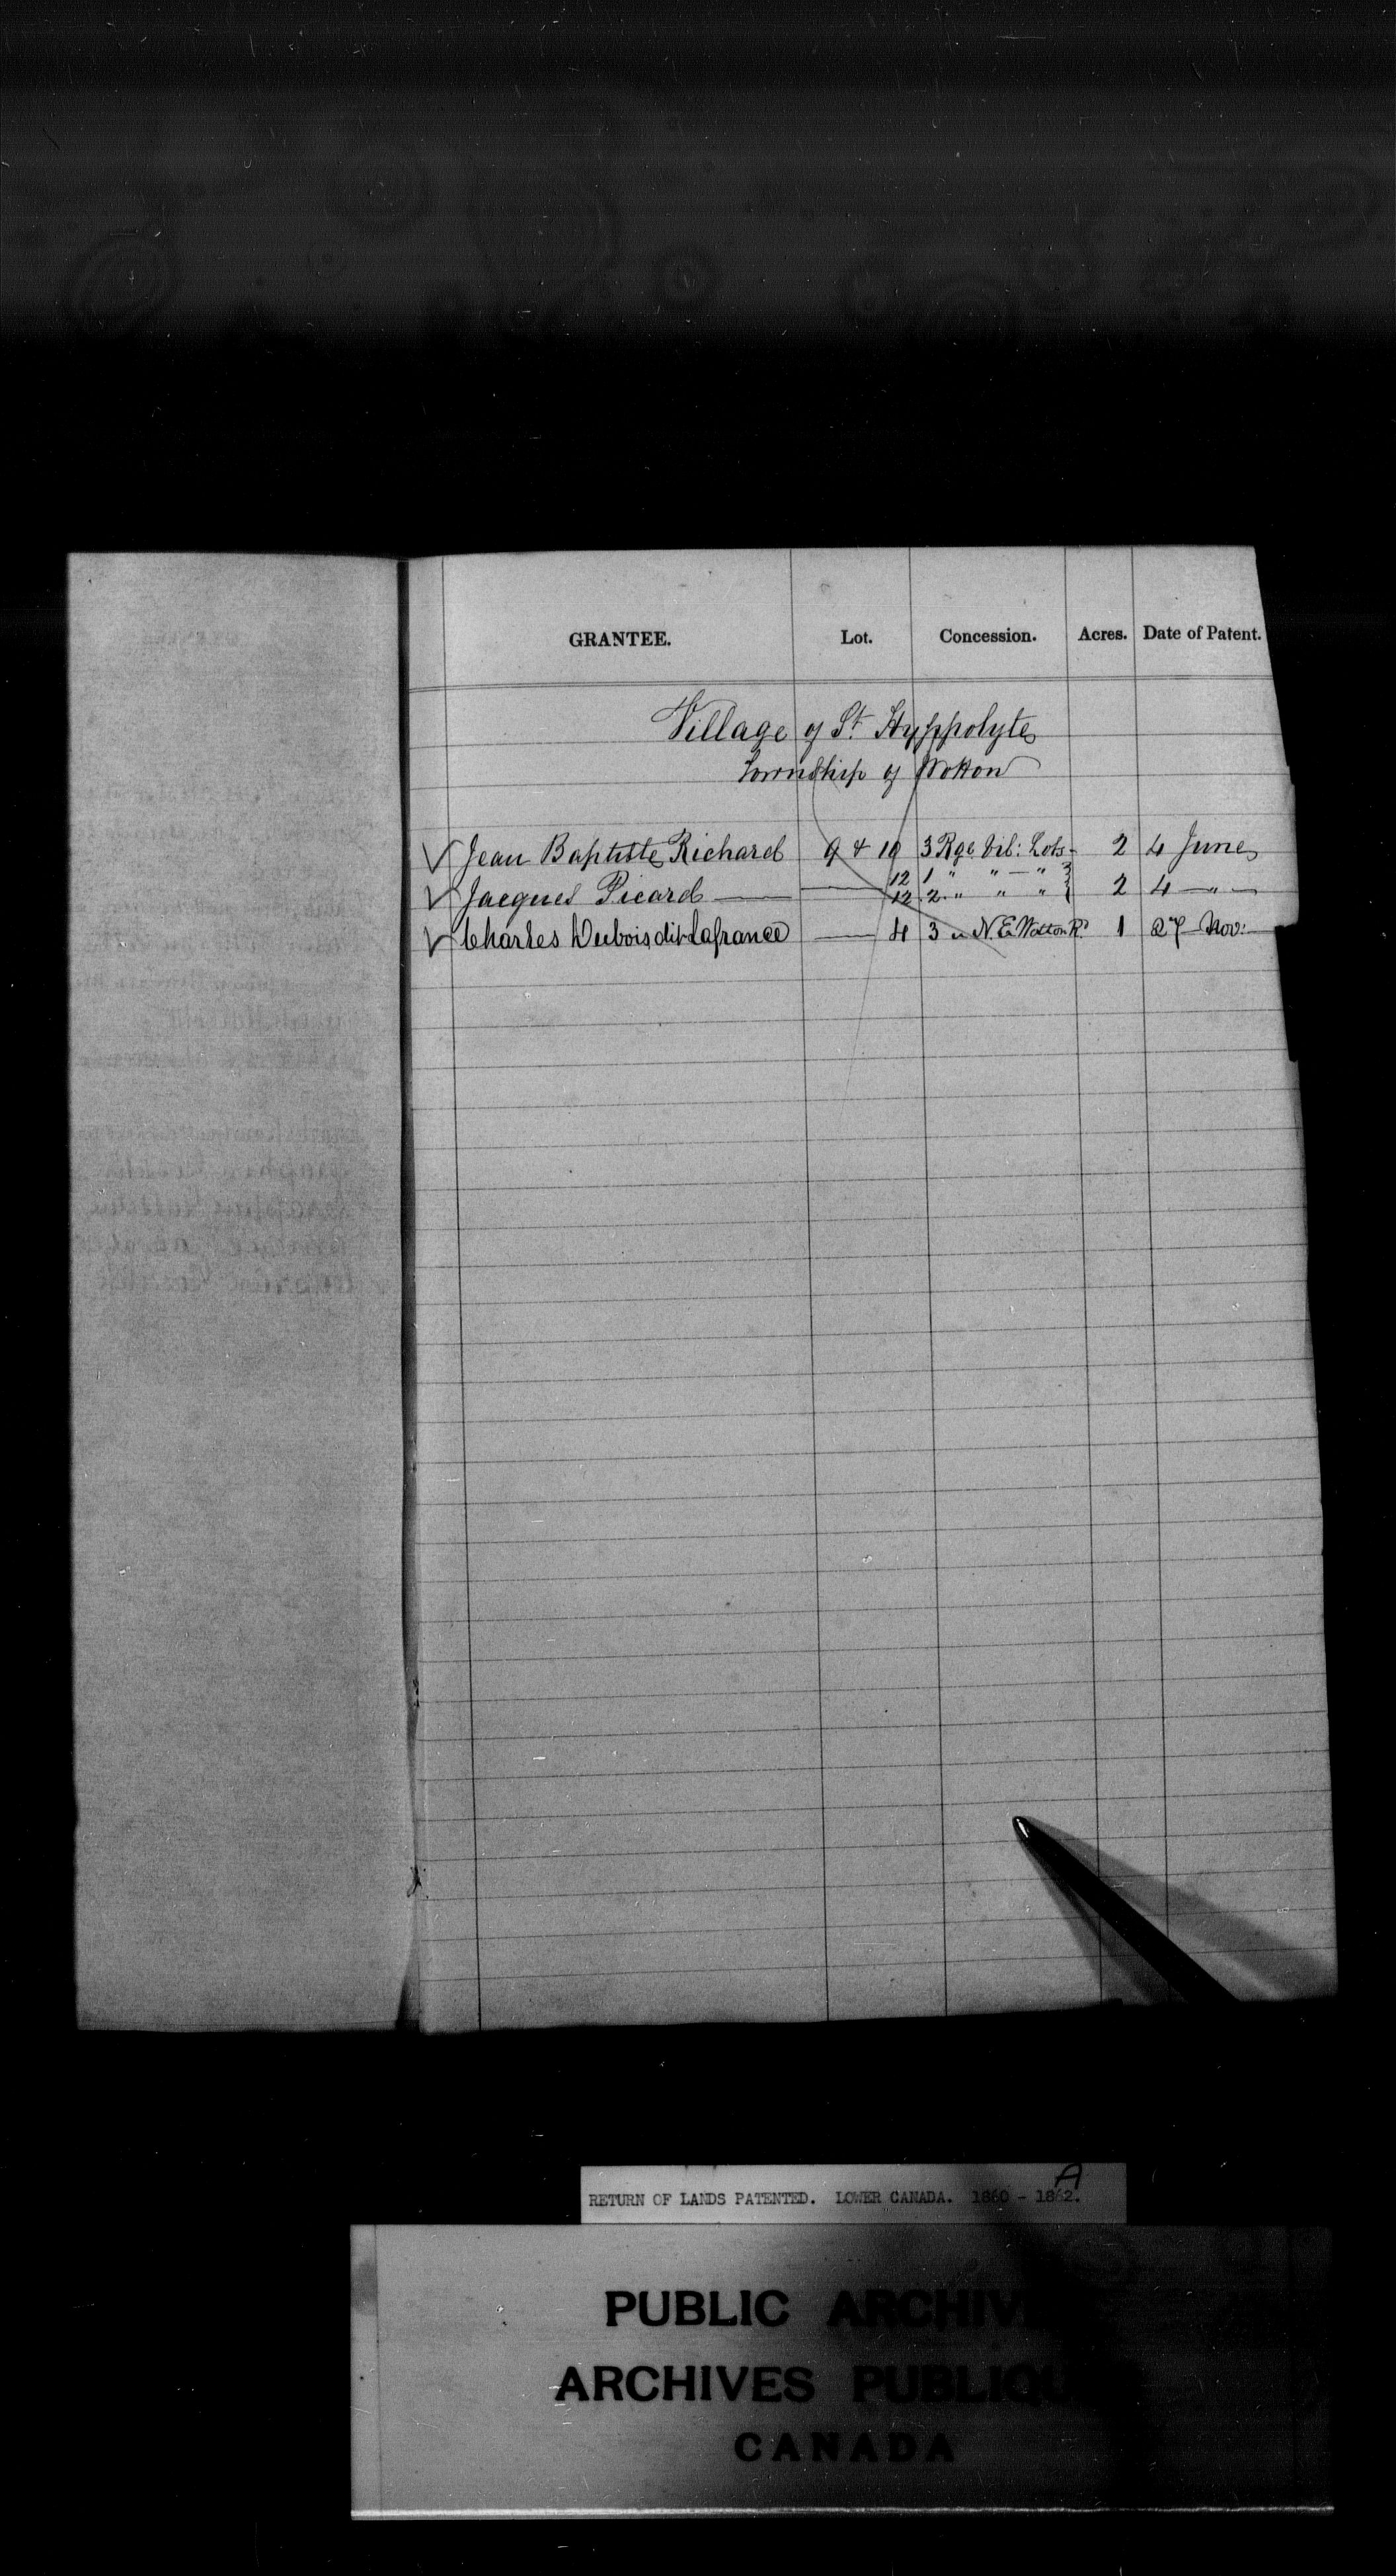 GRANTEE. Lot. Concession. Acres. Date of Patent.
Village of St. Hyppolyte
Township of Wotton
Jean Baptiste Richard 9 & 10 3 Rge Vil: Lots 2 4 June
12 1 " " — "
Jacques Picard — 12 2 " " " 2 4 — " —
Charles Dubois dit Lafrance — 4 3 " N. E. Wotton Rd 1 27 Nov:
RETURN OF LANDS PATENTED. LOWER CANADA. 1860 - 1862.
A
PUBLIC ARCHIV
ARCHIVES PUBLIQU
CANADA